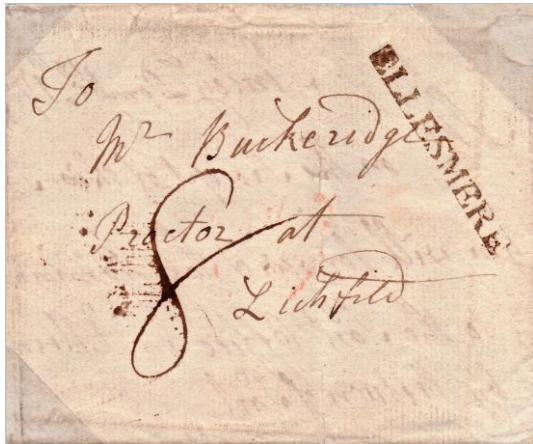 To
ELLESMERE
Mr Buckeridge
Proctor at
8
Lichfield